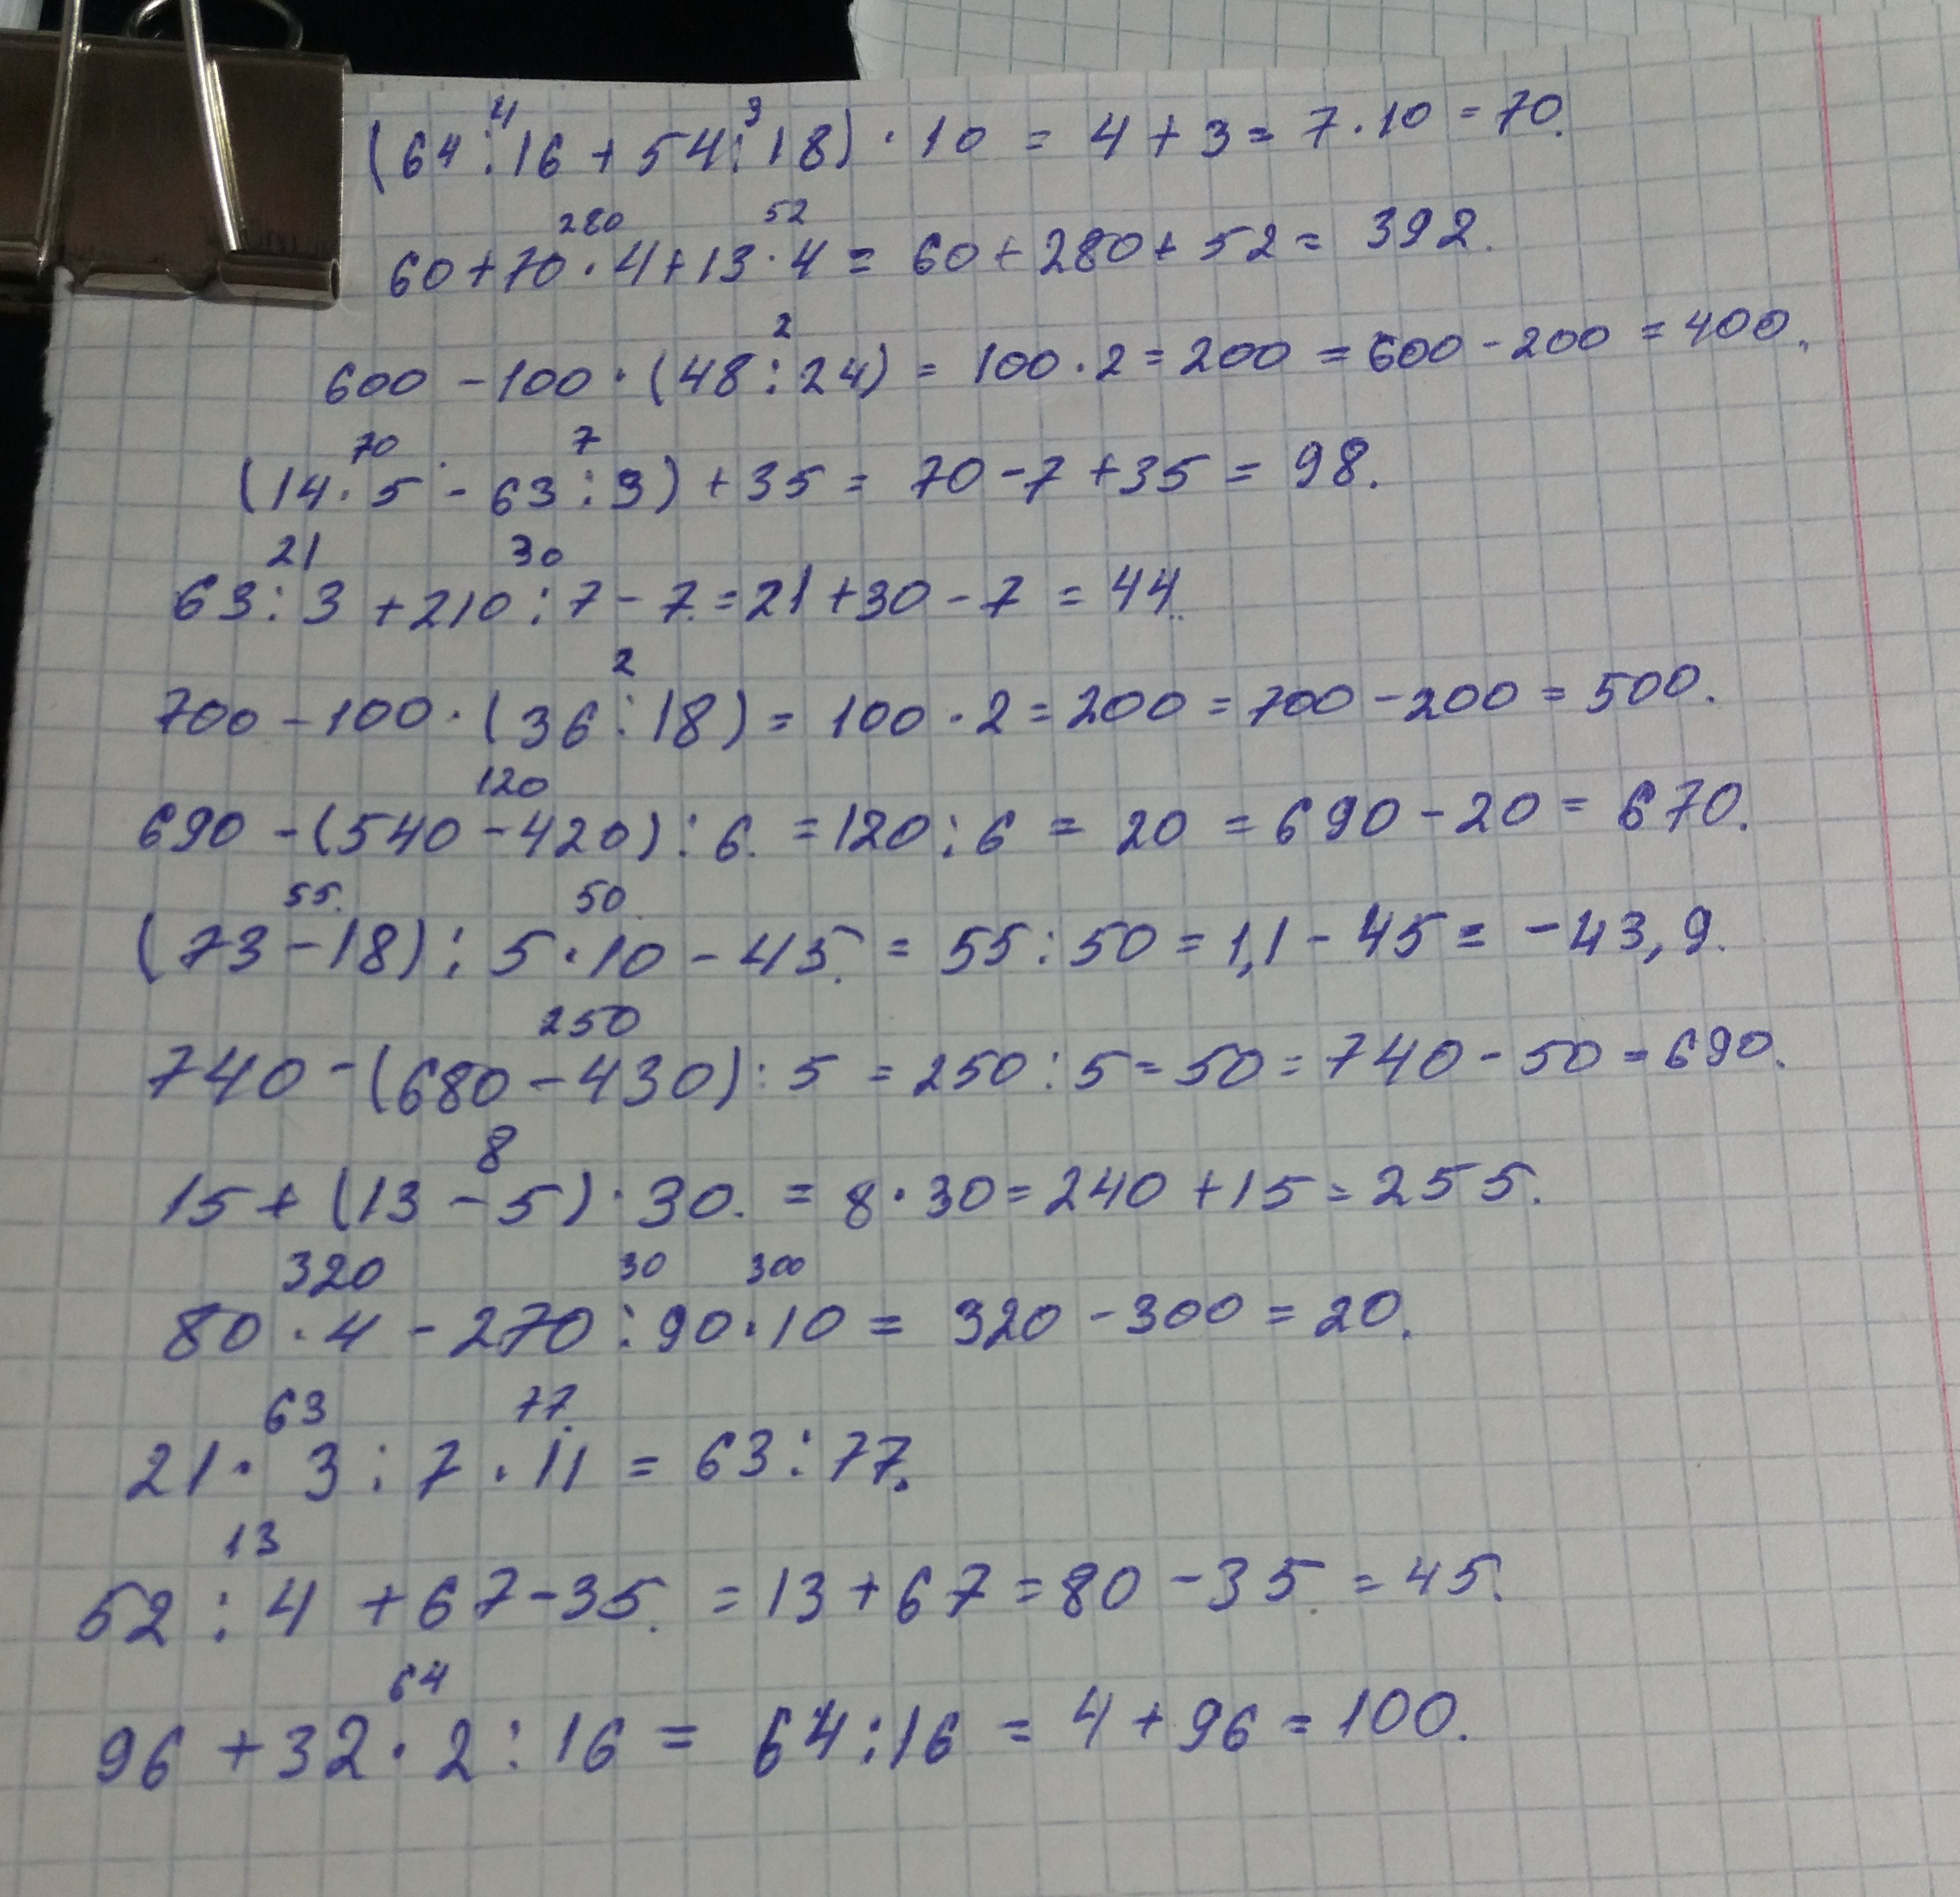 4 3
(64:16+54:18)·10 = 4+3 = 7·10 = 70.
280 52
60+70·4+13·4 = 60+280+52 = 392.
2
600-100·(48:24) = 100·2 = 200 = 600-200 = 400.
70 7
(14·5-63:9)+35 = 70-7+35 = 98.
21 30
63:3+210:7-7 = 21+30-7 = 44.
2
700-100·(36:18) = 100·2 = 200 = 700-200 = 500.
120
690-(540-420):6 = 120:6 = 20 = 690-20 = 670.
55 50
(73-18):5·10-45 = 55:50 = 1,1-45 = -43,9.
250
740-(680-430):5 = 250:5 = 50 = 740-50 = 690.
8
15+(13-5)·30 = 8·30 = 240+15 = 255.
320 30 300
80·4-270:90·10 = 320-300 = 20.
63 77
21·3:7·11 = 63:77.
13
52:4+67-35 = 13+67 = 80-35 = 45.
64
96+32·2:16 = 64:16 = 4+96 = 100.